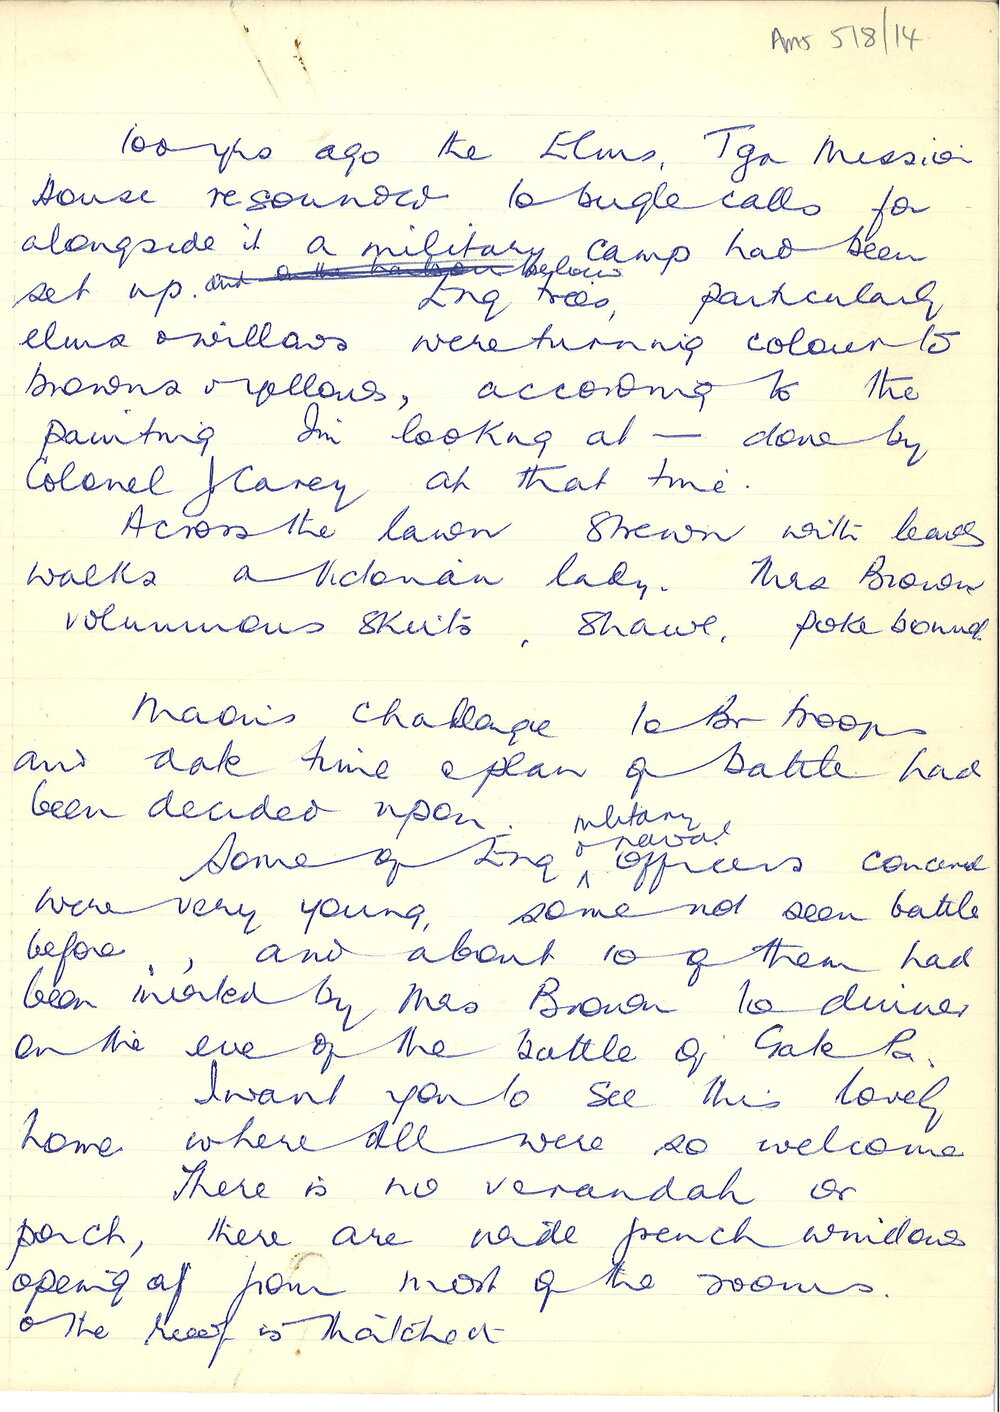 Ams 518/14
100 yrs ago the Elms, Tga Mission
House resounded to bugle calls for
alongside it a military camp had been
set up. and on the harbour below Eng trees, particularly
elms & willows were turning colour to
browns & yellows, according to the
painting I'm looking at — done by
Colonel J Carey at that time.
Across the lawn strewn with leaves
walks a Victorian lady. Mrs Brown
voluminous skirts, shawl, poke bonnet.
Maoris challenge to Br troops
and date time & plan of battle had
been decided upon.
military
& naval
Some of Eng officers concerned
were very young, some not seen battle
before, , and about 10 of them had
been invited by Mrs Brown to dinner
on the eve of the battle of Gate Pa.
I want you to see this lovely
home where all were so welcome
There is no verandah or
porch, there are wide french windows
opening from most of the rooms.
& the roof is thatched